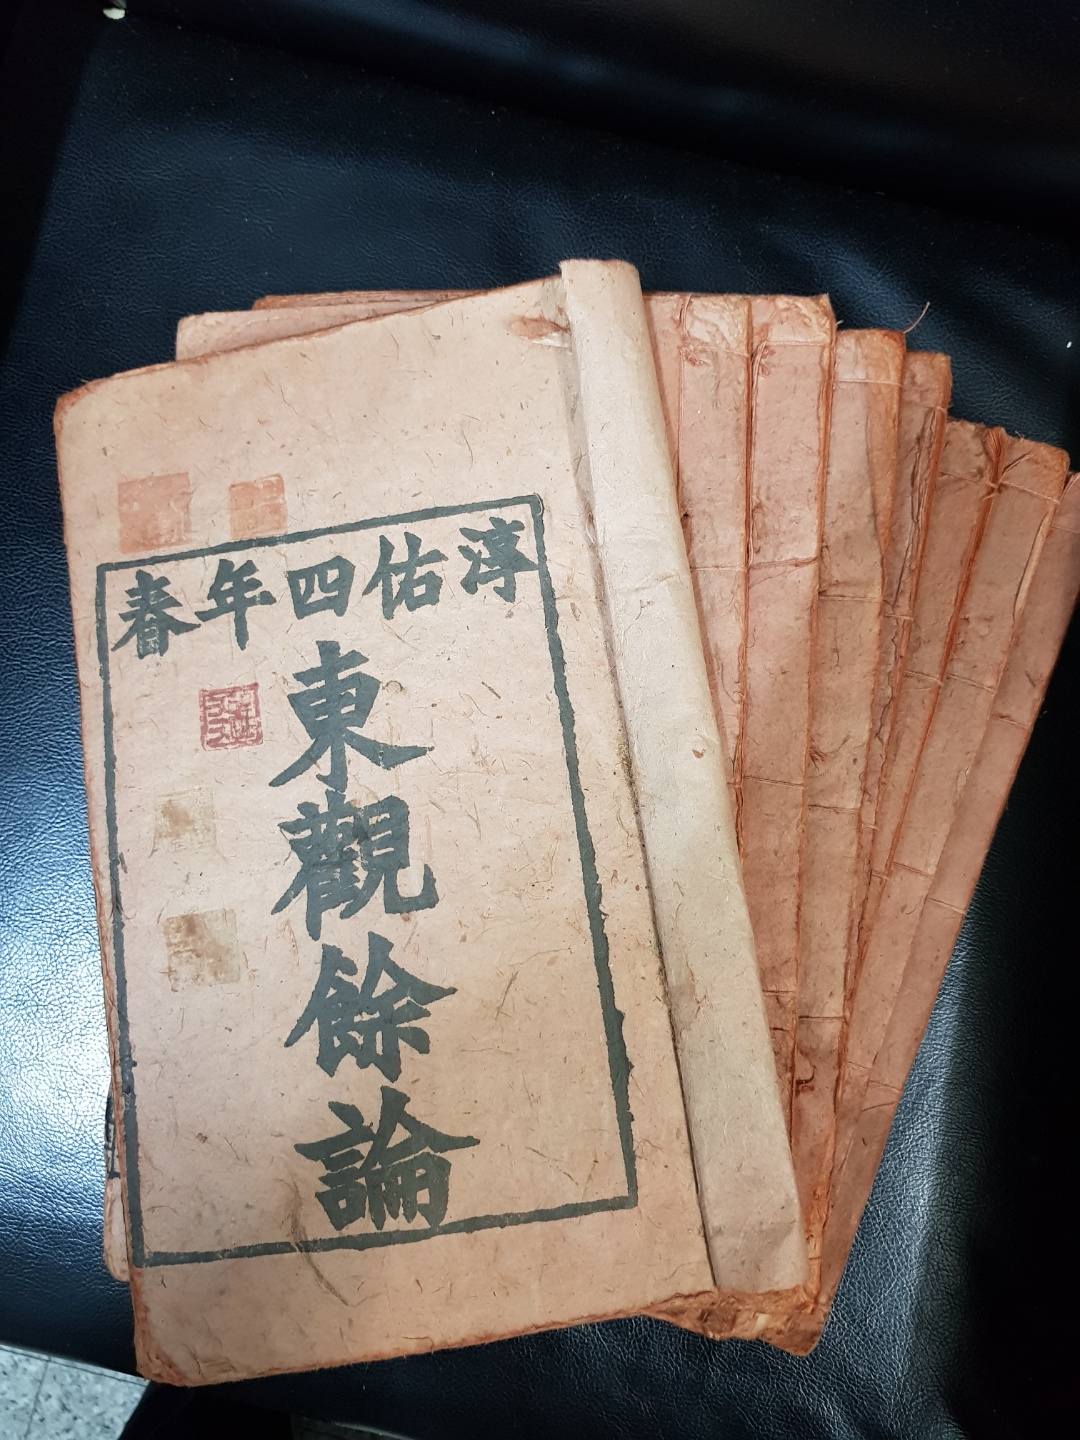 淳佑四年春
東觀餘論